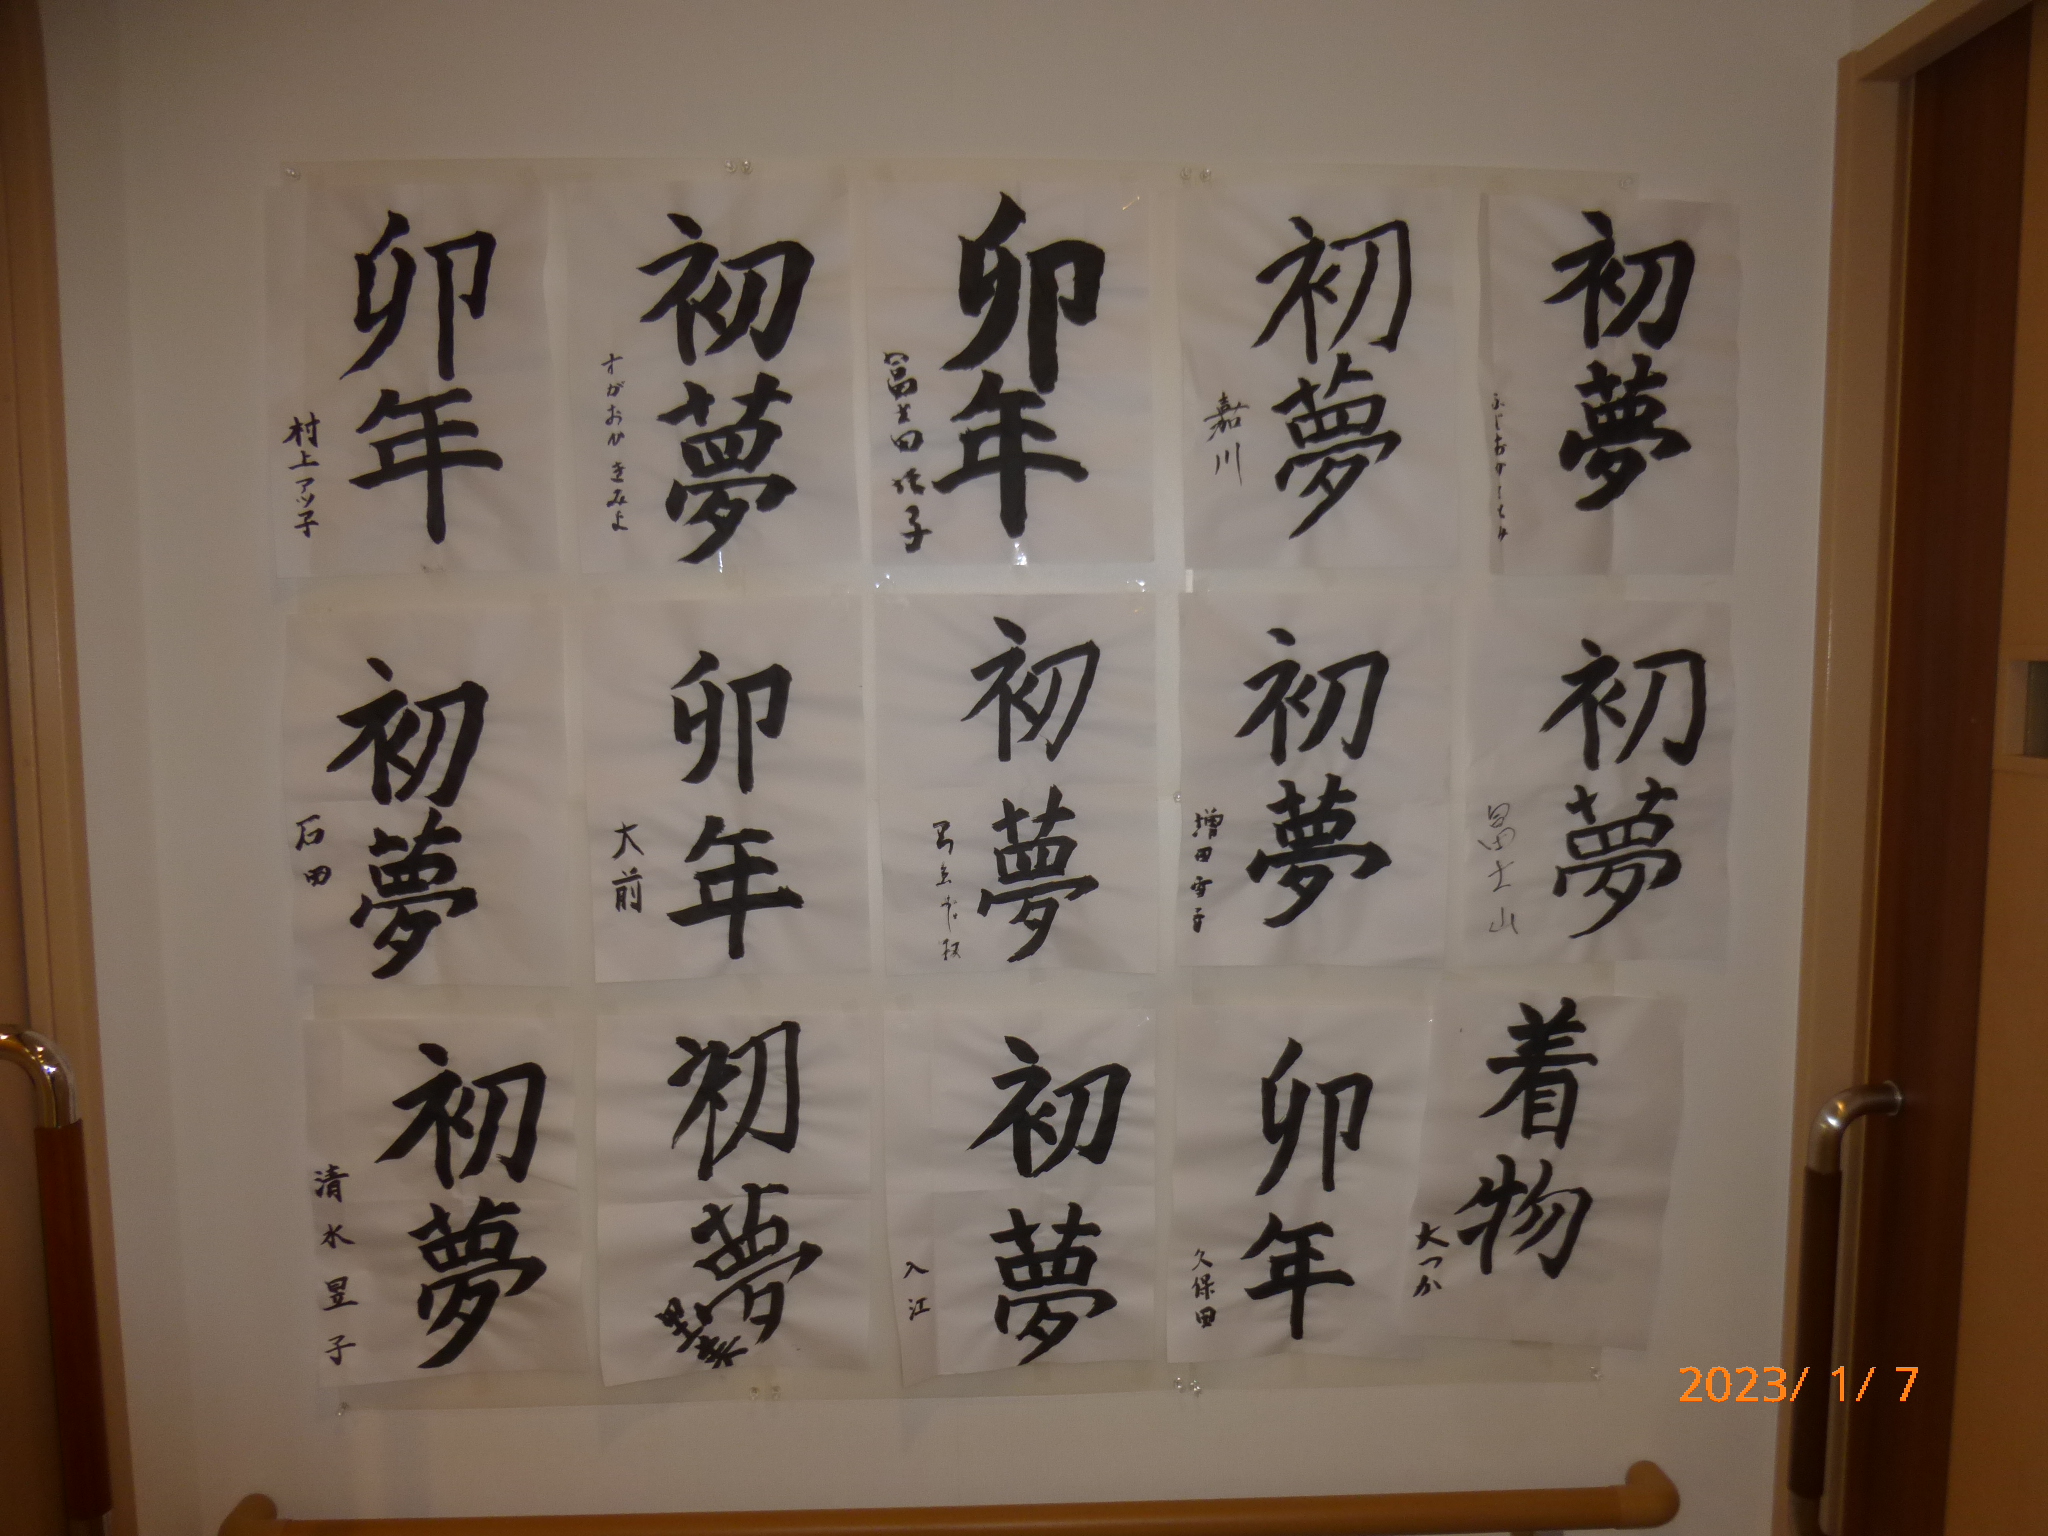 初夢
卯年
初夢
嘉川
卯年
初夢
すがおか きみよ
卯年
村上アツ子
初夢
初夢
増田雪子
初夢
卯年
大前
初夢
石田
着物
大つか
卯年
久保田
初夢
入江
初夢
初夢
清水昱子
2023/ 1/ 7